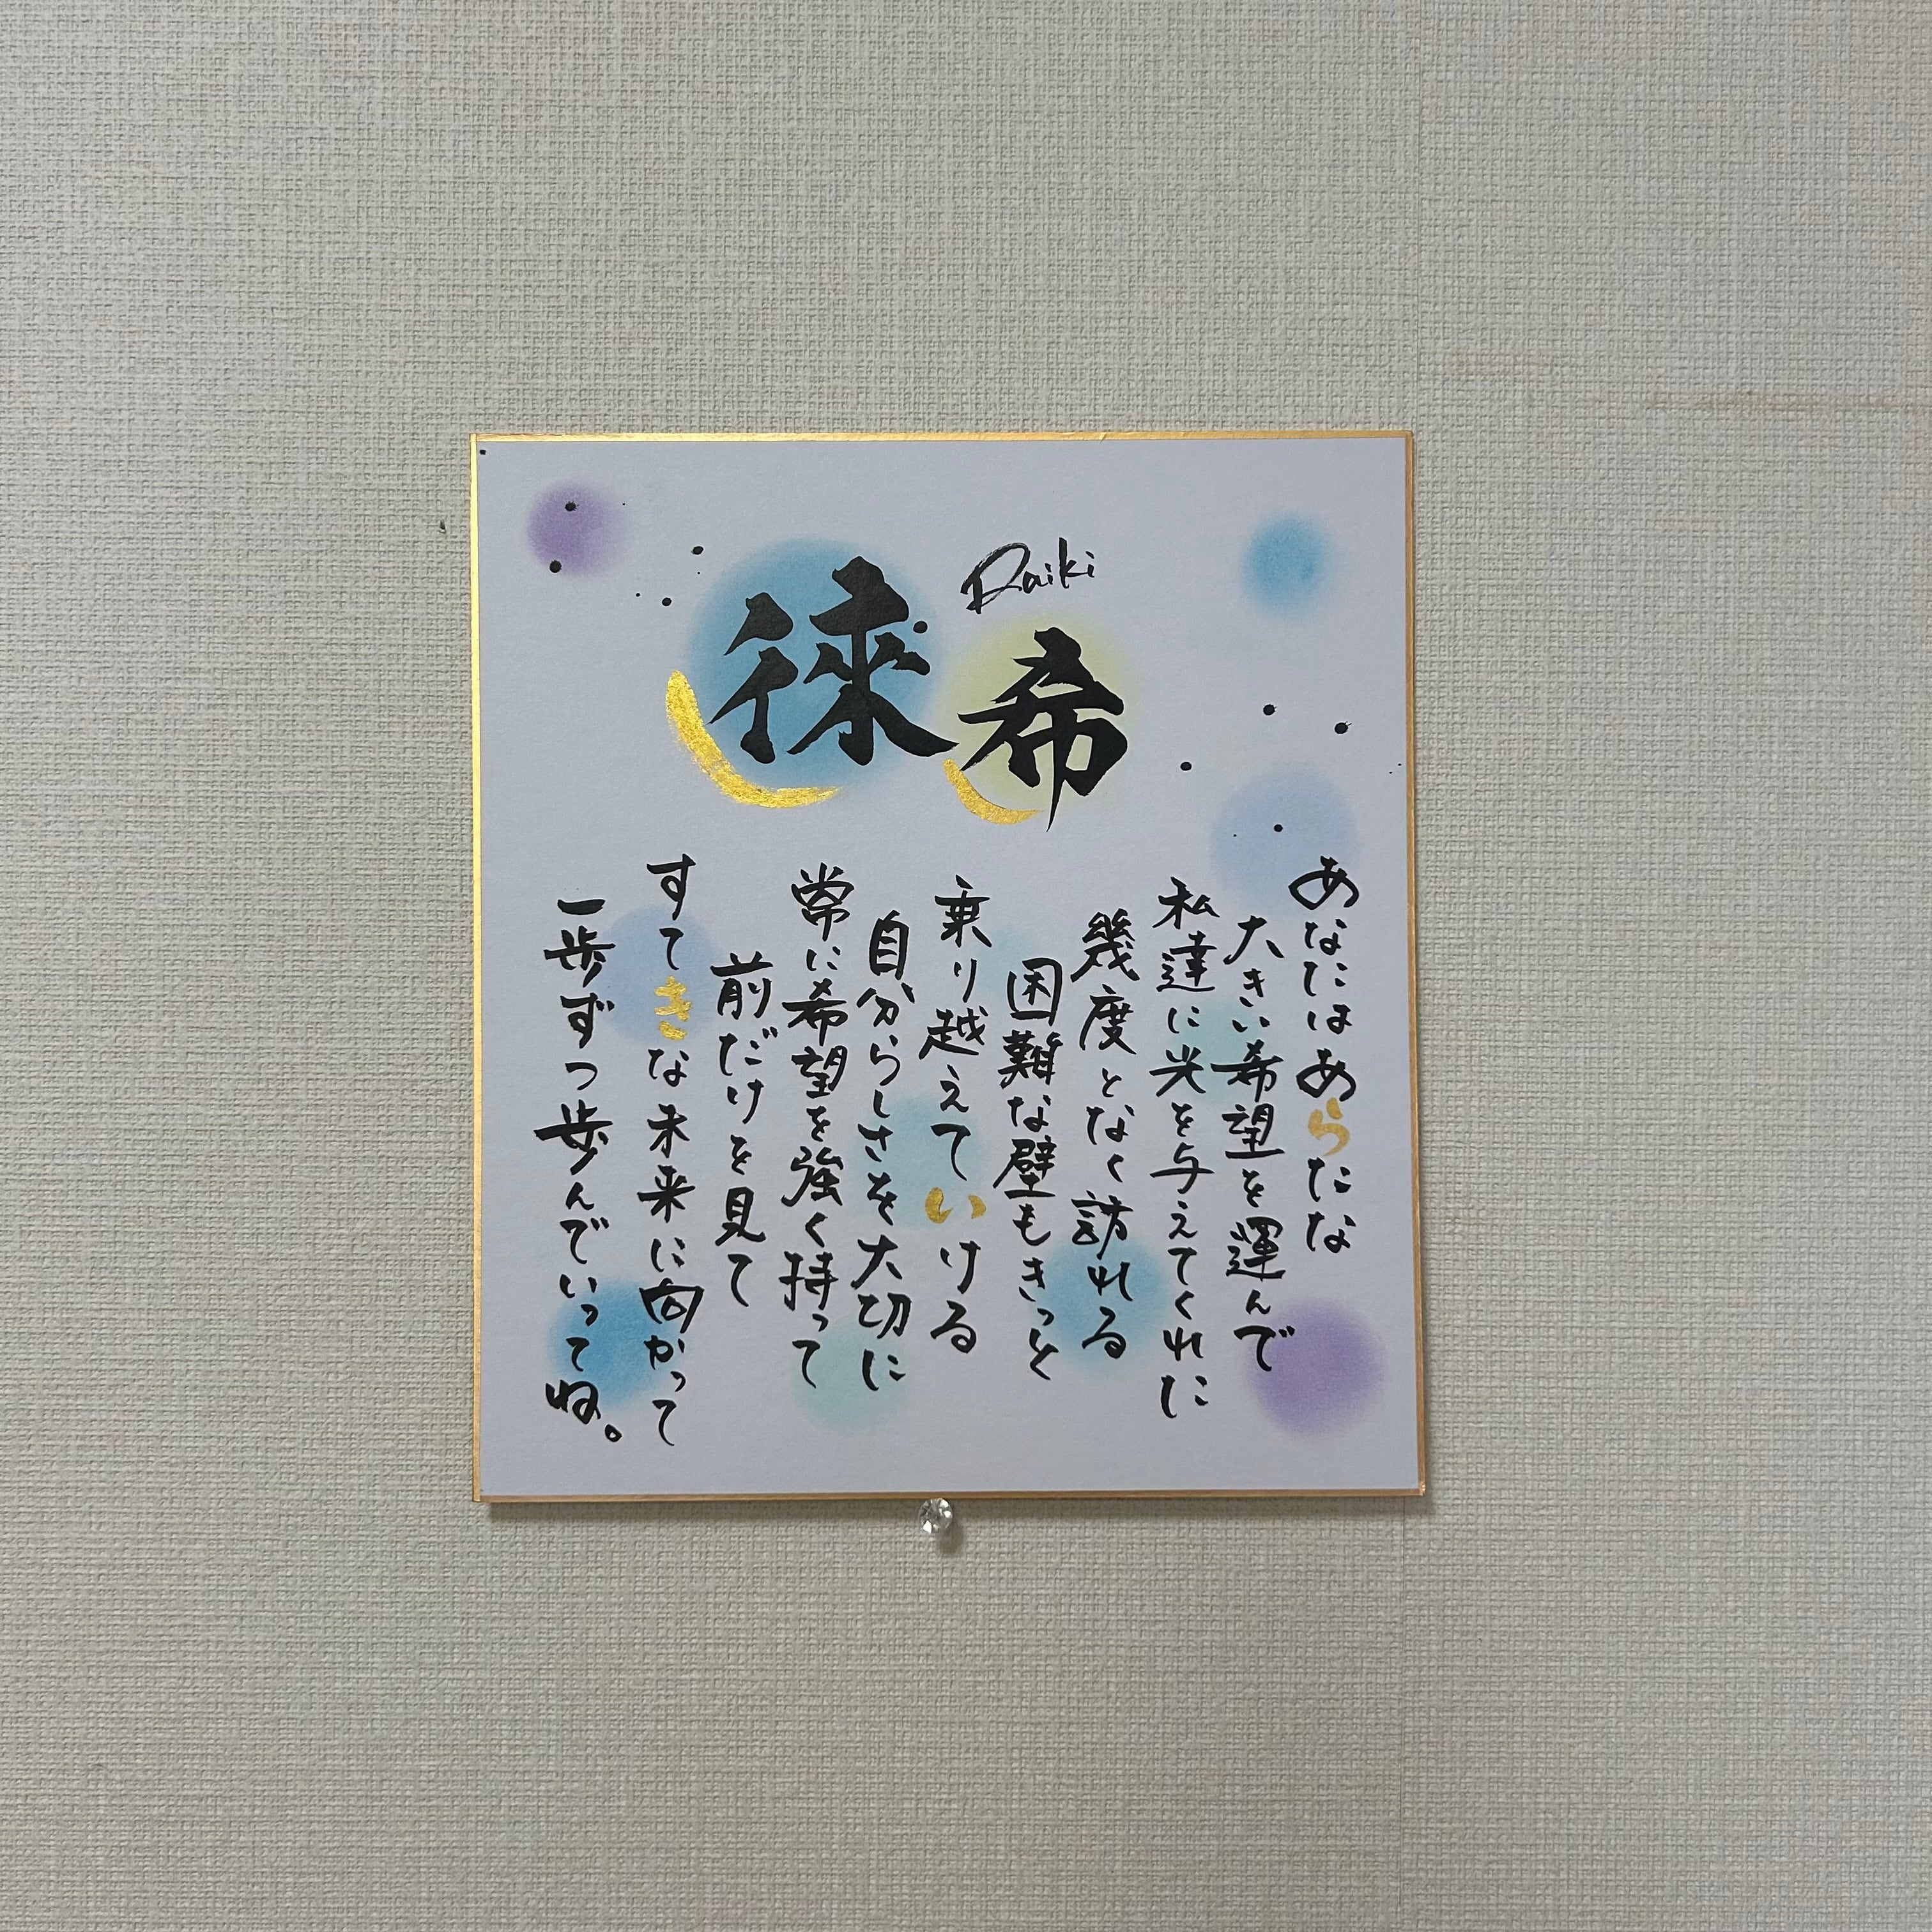 徠希
Raiki
あなたはあらたな
大きい希望を運んで
私達に光を与えてくれた
幾度となく訪れる
困難な壁もきっと
乗り越えていける
自分らしさを大切に
常に希望を強く持って
前だけを見て
すてきな未来に向かって
一歩ずつ歩んでいってね。